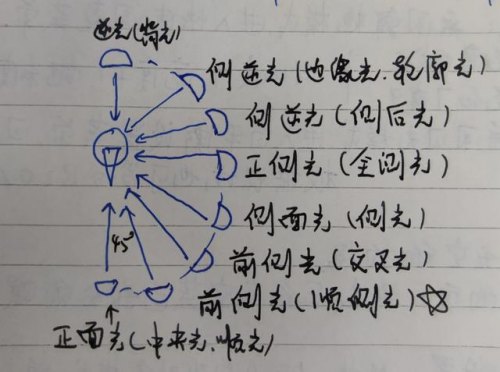 逆光(背光)
侧逆光(边缘光、轮廓光)
侧逆光(侧后光)
正侧光(全侧光)
侧面光(侧光)
前侧光(交叉光)
45°
前侧光(顺侧光)☆
正面光(中夹光、顺光)